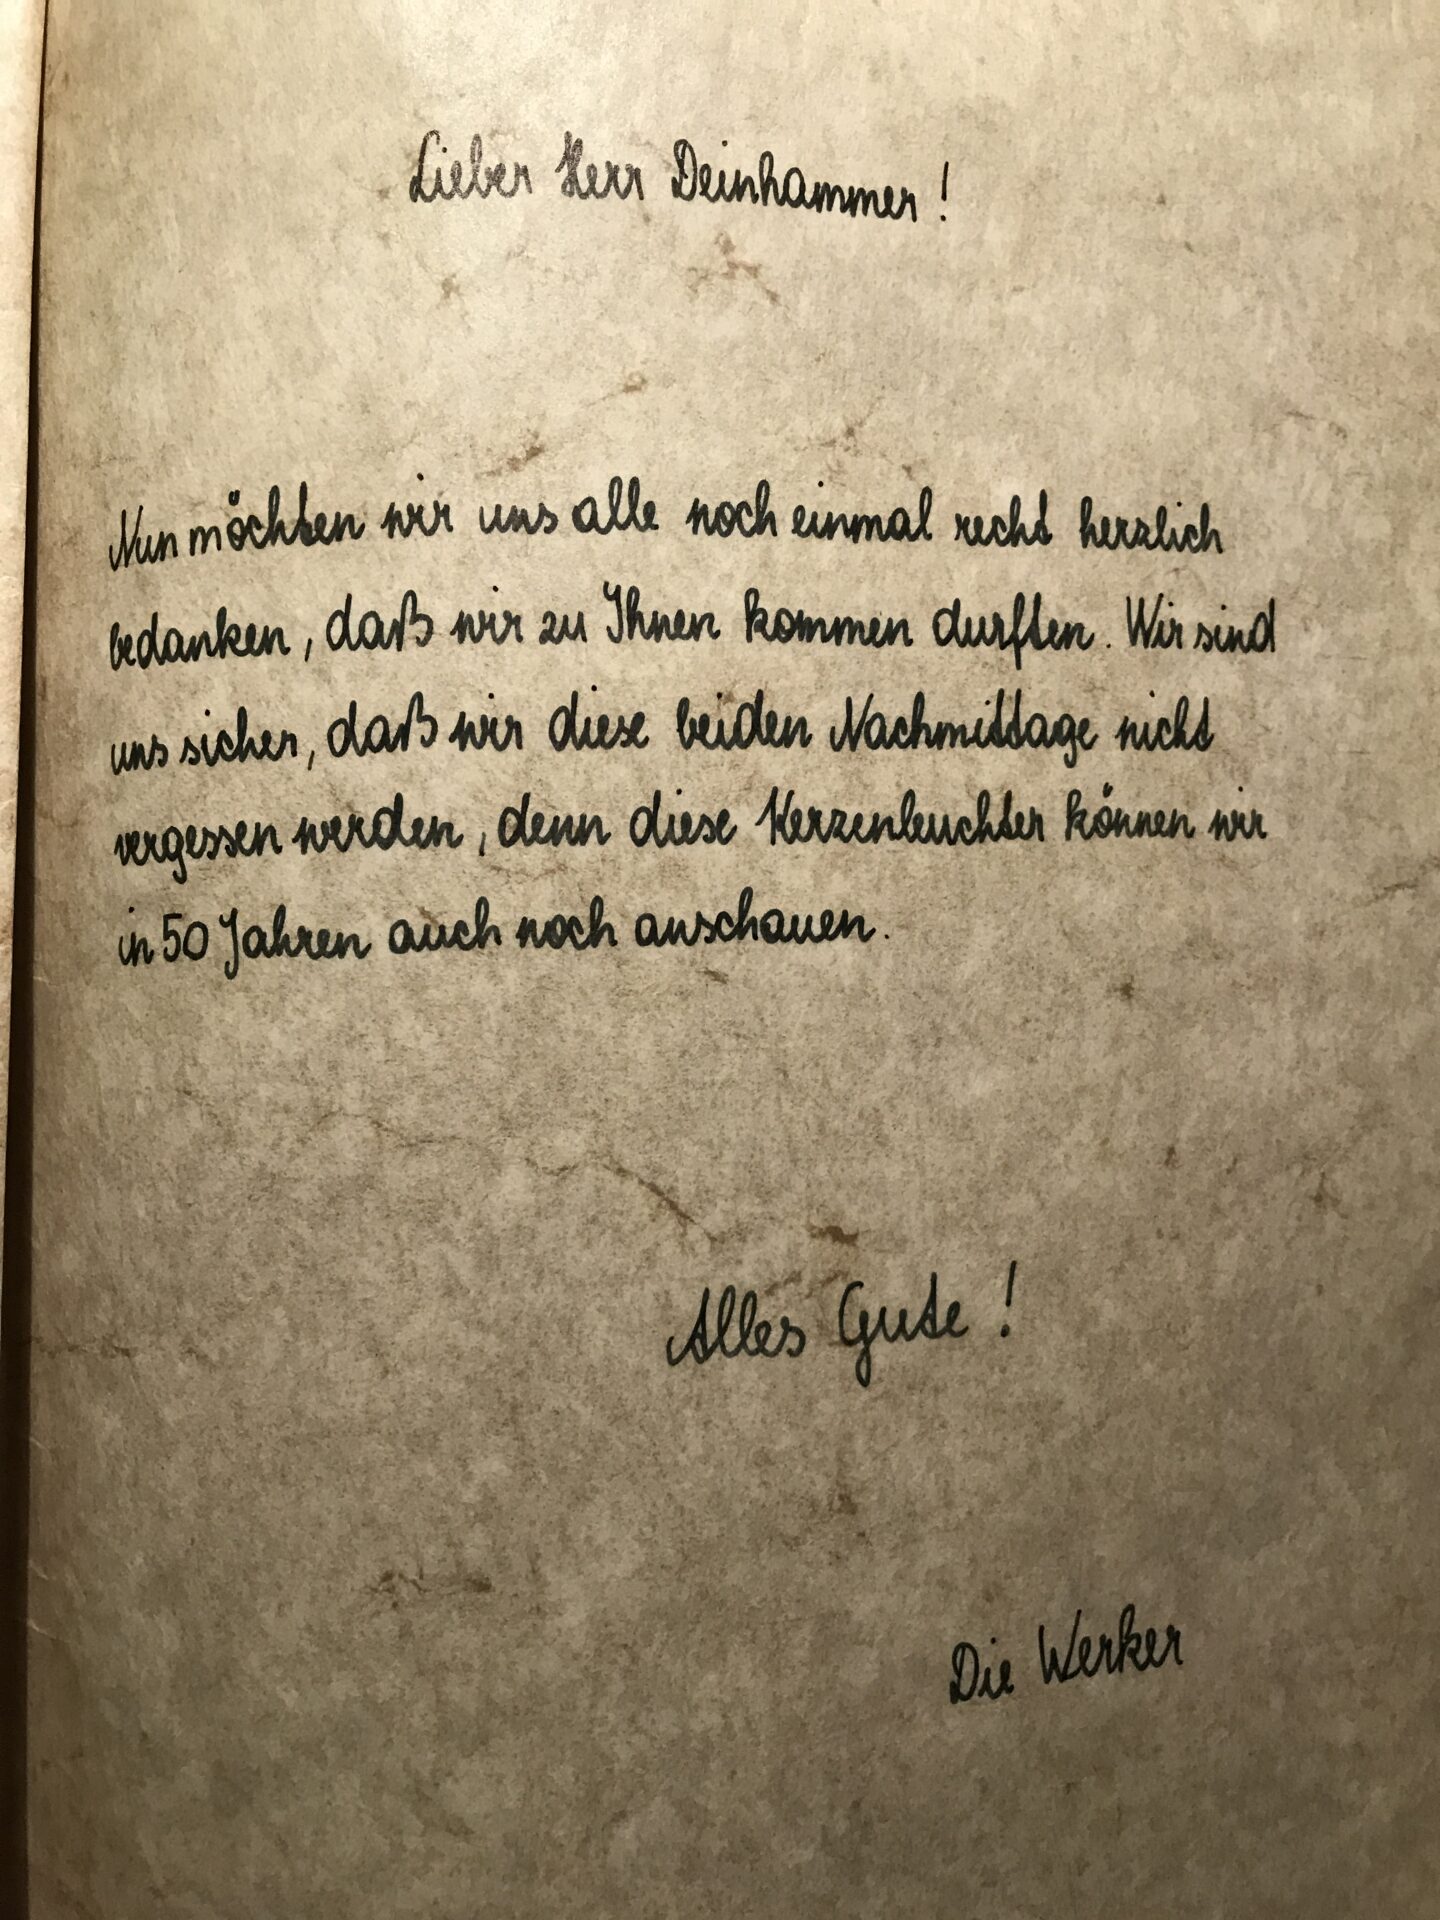 Lieber Herr Deinhammer!
Nun möchten wir uns alle noch einmal recht herzlich
bedanken, daß wir zu Ihnen kommen durften. Wir sind
uns sicher, daß wir diese beiden Nachmittage nicht
vergessen werden, denn diese Kerzenleuchter können wir
in 50 Jahren auch noch anschauen.
Alles Gute!
Die Werker